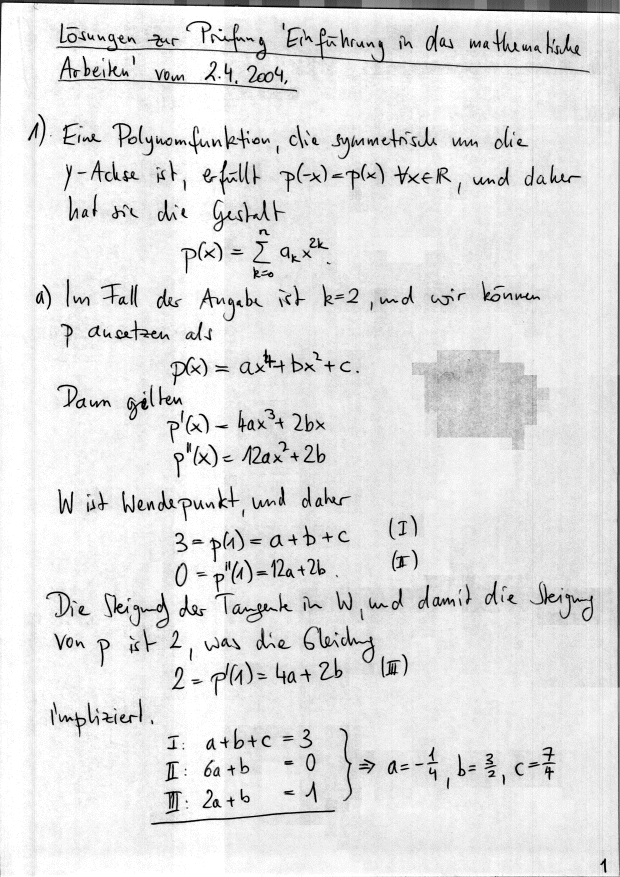 Lösungen zur Prüfung 'Einführung in das mathematische
Arbeiten' vom 2.4.2004.
1). Eine Polynomfunktion, die symmetrisch um die
y-Achse ist, erfüllt p(-x)=p(x) ∀x∈ℝ, und daher
hat sie die Gestalt
p(x) = ∑_{k=0}^{n} a_k x^{2k}.
a) Im Fall der Angabe ist k=2, und wir können
p ansetzen als
p(x) = ax⁴+bx²+c.
Dann gelten
p'(x) = 4ax³+2bx
p''(x) = 12ax²+2b
W ist Wendepunkt, und daher
3 = p(1) = a+b+c (I)
0 = p''(1) = 12a+2b. (II)
Die Steigung der Tangente in W, und damit die Steigung
von p ist 2, was die Gleichung
2 = p'(1) = 4a+2b (III)
impliziert.
I: a+b+c = 3
II: 6a+b = 0 ⇒ a=-1/4, b=3/2, c=7/4
III: 2a+b = 1
1